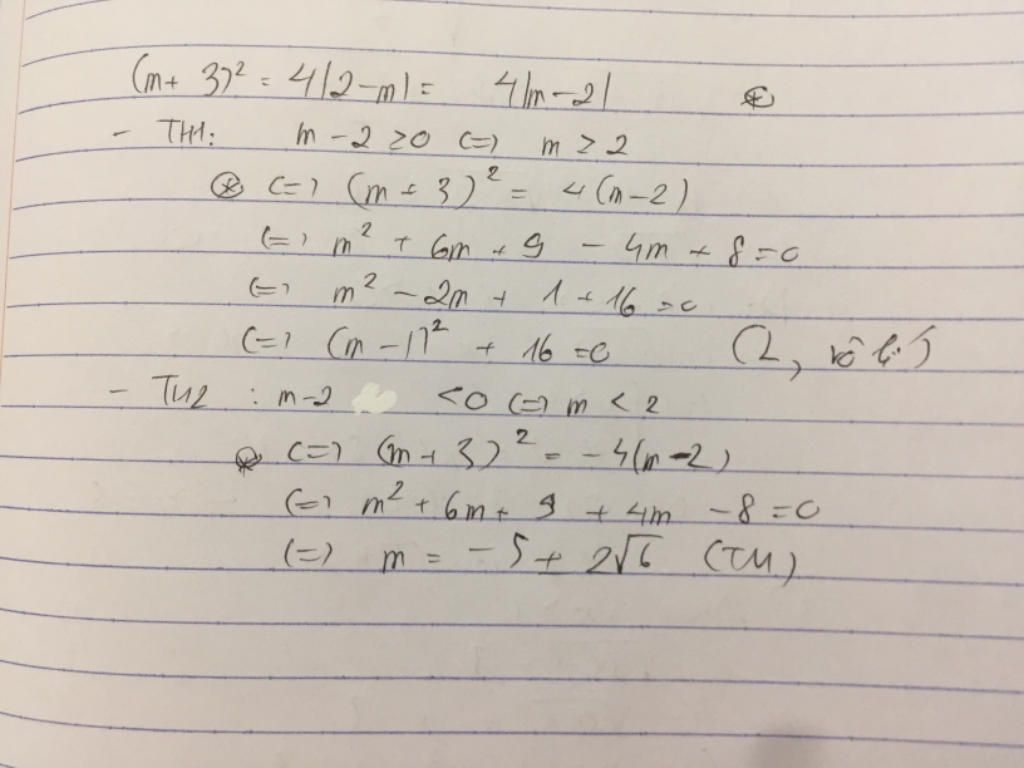 (m + 3)² = 4|2 - m| = 4|m - 2| (*)
- TH1: m - 2 ≥ 0 <=> m ≥ 2
(*) <=> (m + 3)² = 4(m - 2)
<=> m² + 6m + 9 - 4m + 8 = 0
<=> m² - 2m + 1 + 16 = 0
<=> (m - 1)² + 16 = 0 (L, vô lí)
- TH2 : m - 2 < 0 <=> m < 2
(*) <=> (m + 3)² = -4(m - 2)
<=> m² + 6m + 9 + 4m - 8 = 0
<=> m = -5 ± 2√6 (TM)